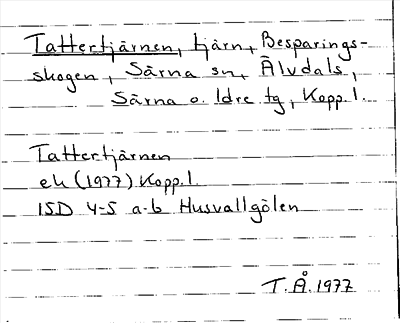 Tattertjärnen, tjärn, Besparings-
skogen, Särna sn, Älvdals,
Särna o. Idre tg, Kopp. l.
Tattertjärnen
ek (1977) Kopp. l.
15D 4-5 a-b Husvallgölen
T.Å. 1977